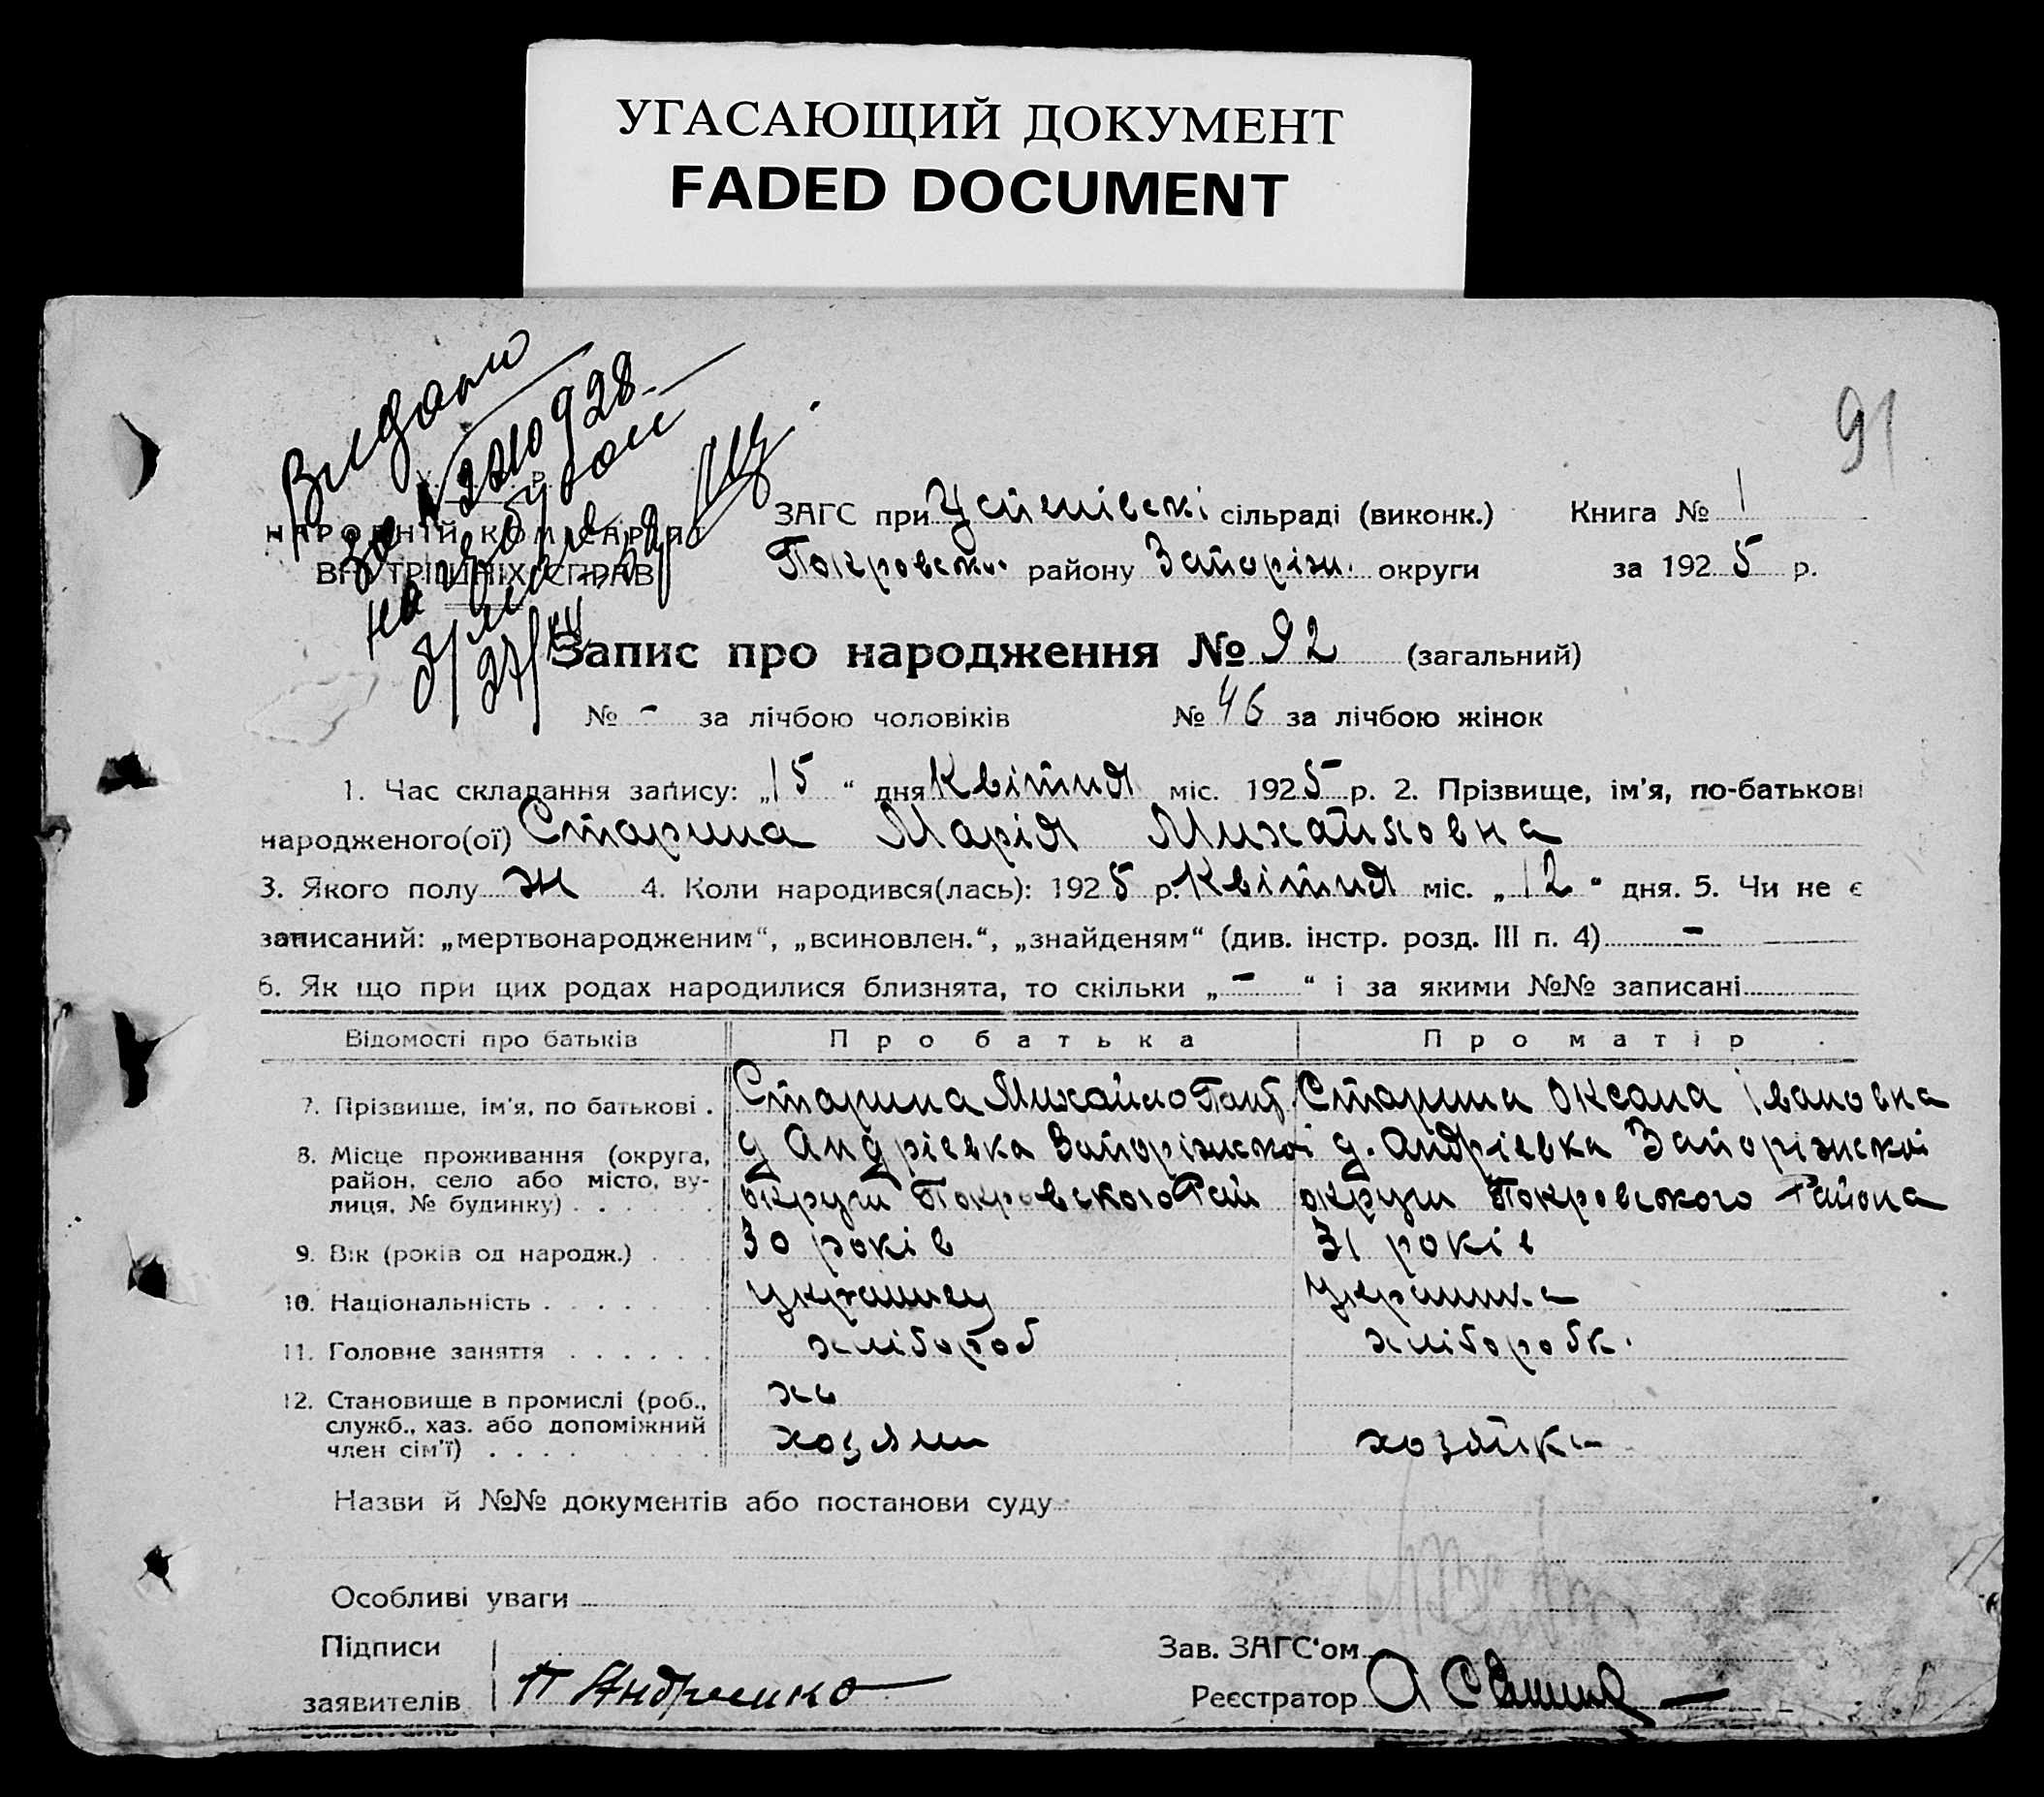 УГАСАЮЩИЙ ДОКУМЕНТ
FADED DOCUMENT
91
Видано
за № 2210 928
27/XII
НАРОДНІЙ КОМІСАРІАТ
ВНУТРІШНІХ СПРАВ
ЗАГС при Успенівскі сільраді (виконк.) Книга № 1
Покровськ. району Запоріж. округи за 1925 р.
Запис про народження № 92 (загальний)
№ - за лічбою чоловіків № 46 за лічбою жінок
1. Час складання запису: „15“ дня Квітня міс. 1925 р. 2. Прізвище, ім'я, по-батькові
народженого(ої) Старина Марія Михайловна
3. Якого полу ж 4. Коли народився(лась): 1925 р. Квітня міс. „12“ дня. 5. Чи не є
записаний: „мертвонародженим“, „всиновлен.“, „знайденям“ (див. інстр. розд. III п. 4) -
6. Як що при цих родах народилися близнята, то скільки „-“ і за якими №№ записані
Відомості про батьків Про батька Про матір
7. Прізвише, ім'я, по батькові . Старина Михайло Старина Оксана Івановна
8. Місце проживання (округа, район, село або місто, вулиця, № будинку) д Андрієвка Запоріжської д. Андрієвка Запоріжской
округи Покровського Рай округи Покровського Района
9. Вік (років од народж.) . . . 30 років 31 років
10. Національність . . . . . . . українец українка
11. Головне заняття . . . . . . хлібороб хліборобк.
12. Становище в промислі (роб., служб., хаз. або допоміжний член сім'ї) хозяин хозяйка
Назви й №№ документів або постанови суду
Особливі уваги
Підписи Зав. ЗАГС'ом
заявителів П Андрієнко Реєстратор